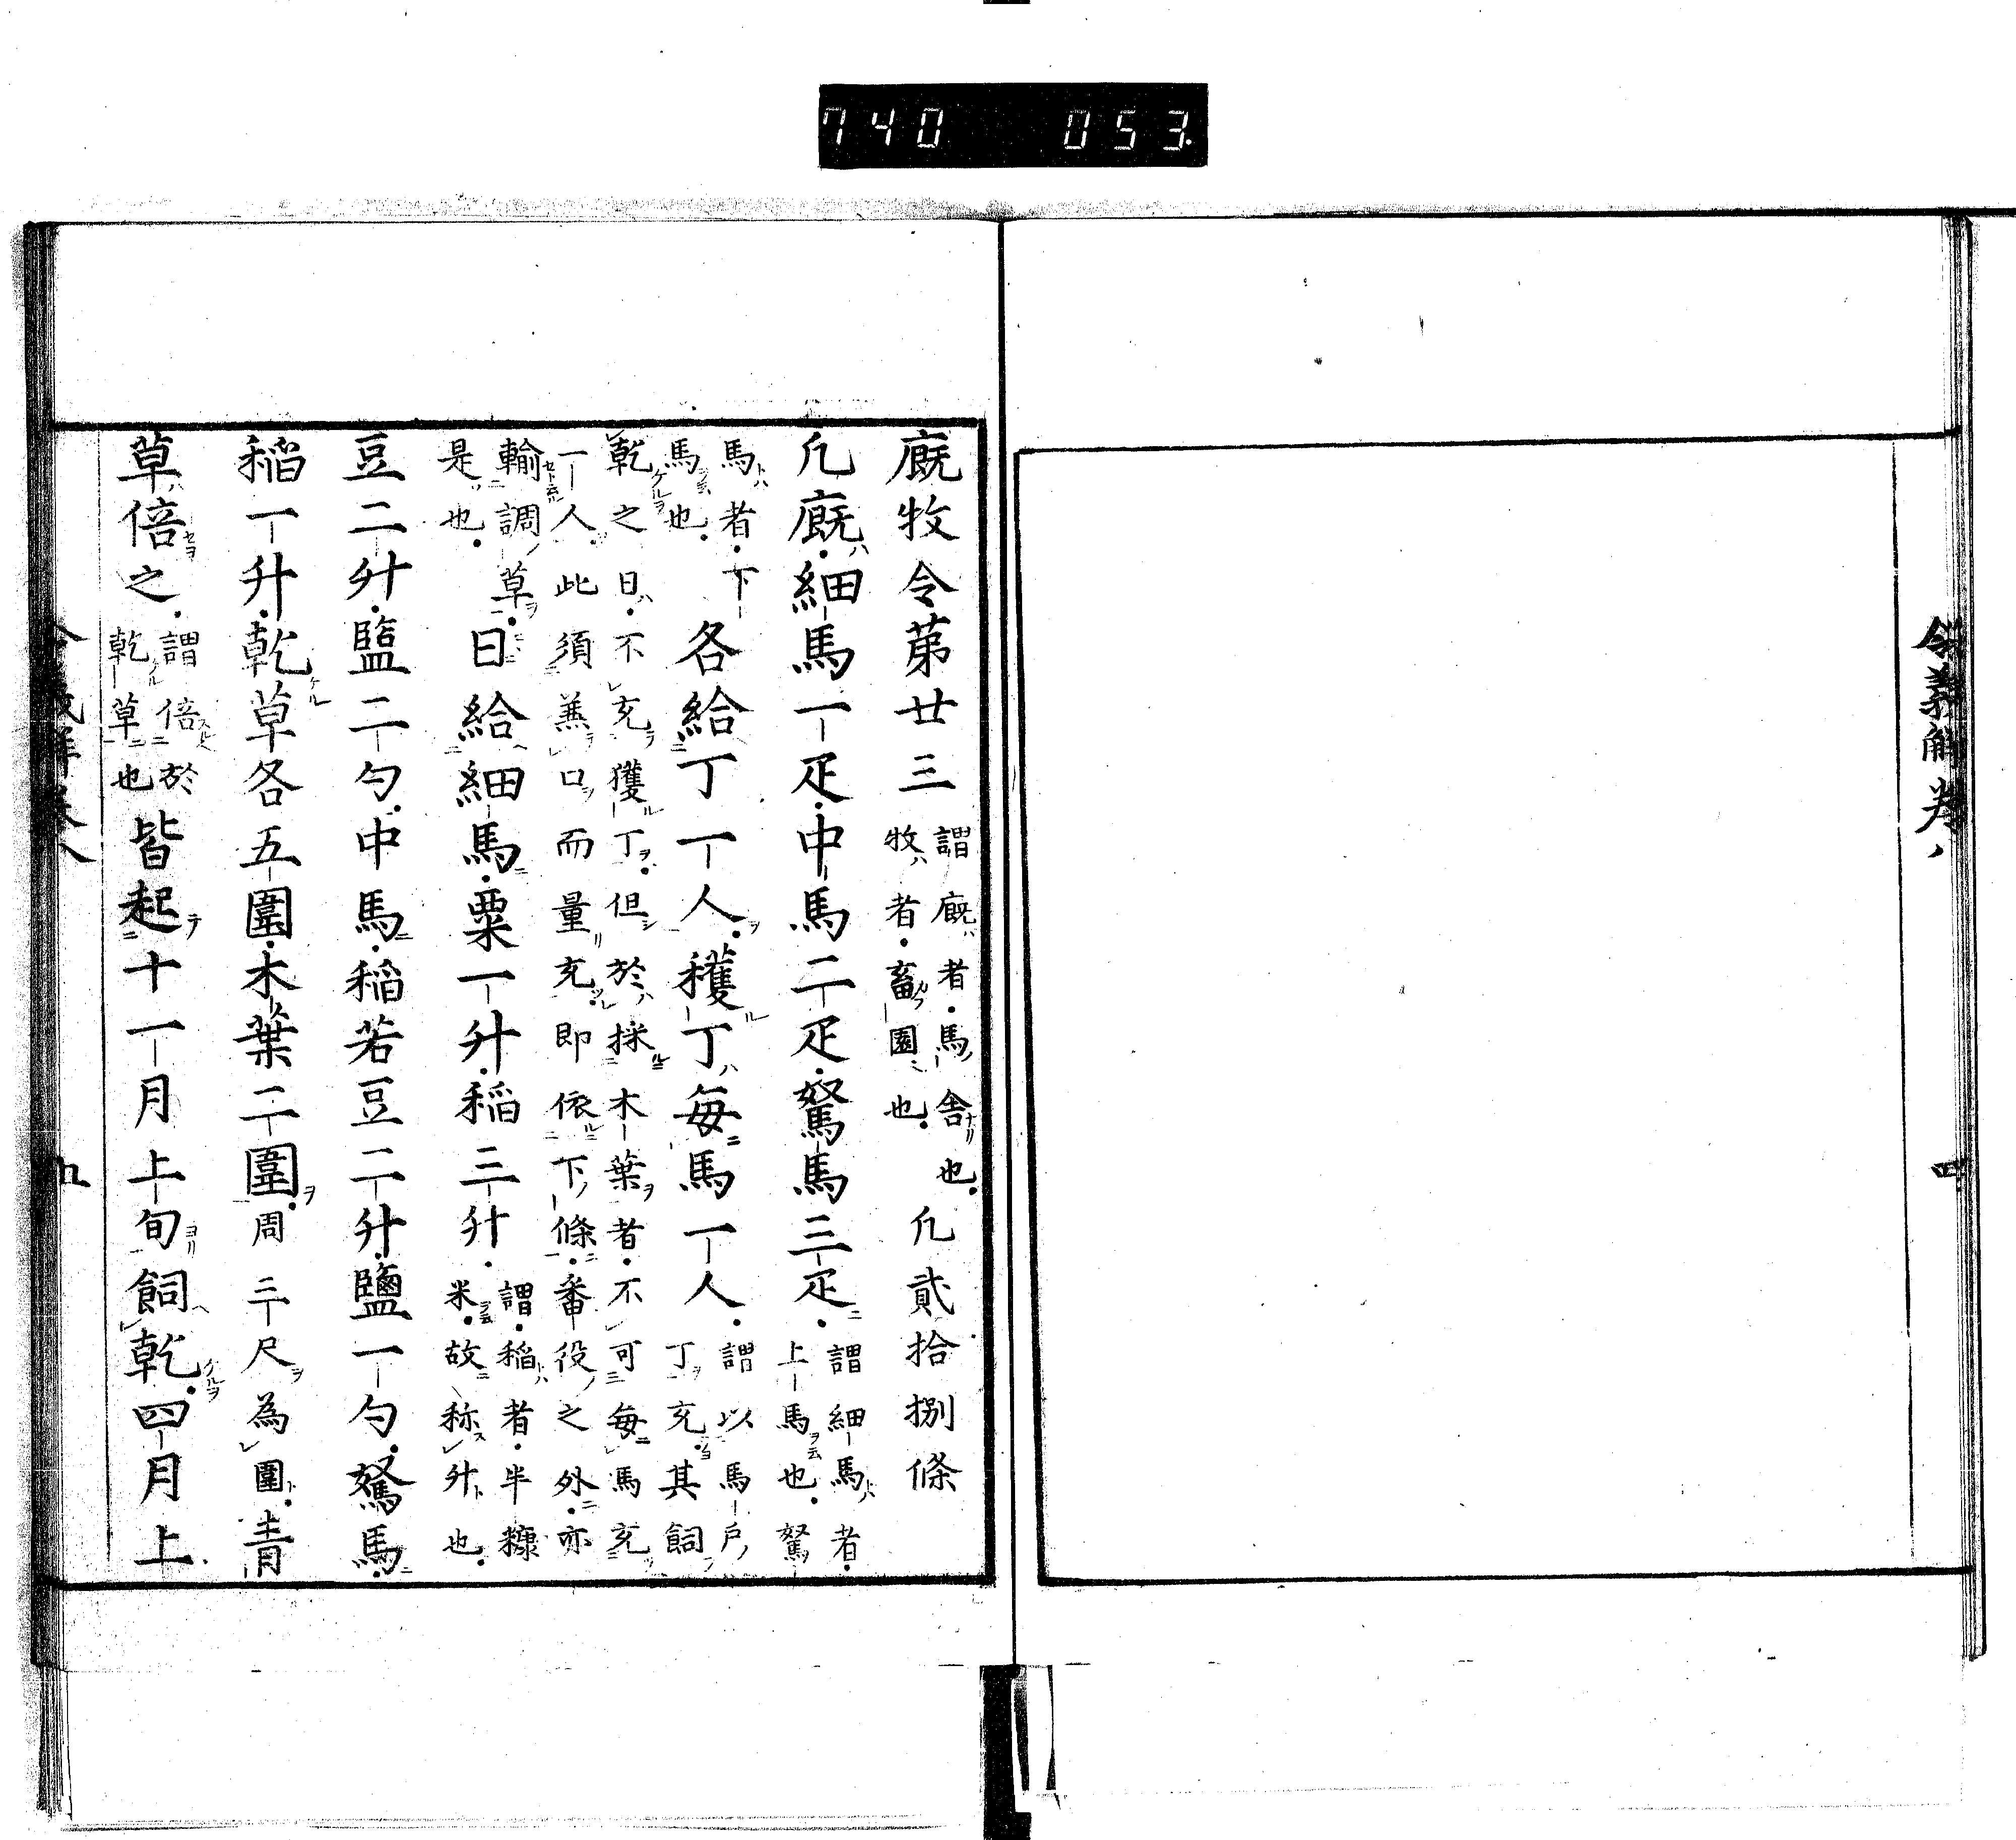 740 053
令義解卷八
四
廐牧令苐廿三 謂廐者馬舎也 牧者畜園也 凢貳拾捌條
凢廐細馬一疋中馬二疋駑馬三疋 謂細馬者 上馬也駑
馬者下 馬也 各給丁一人穫丁毎馬一人 謂以馬戸 丁充其飼
乾之日不充獲丁但於採木葉者不可毎馬充
一人此須𠔥口而量充即依下條番役之外亦
輸調草 是也 日給細馬粟一升稲三升 謂稲者半糠 米故称升也
豆二升塩二勺中馬稲若豆二升鹽一勺駑馬
稲一升乾草各五圍木葉二圍 周三尺為圍 青
草倍之 謂倍於 乾草也 皆起十一月上旬飼乾四月上